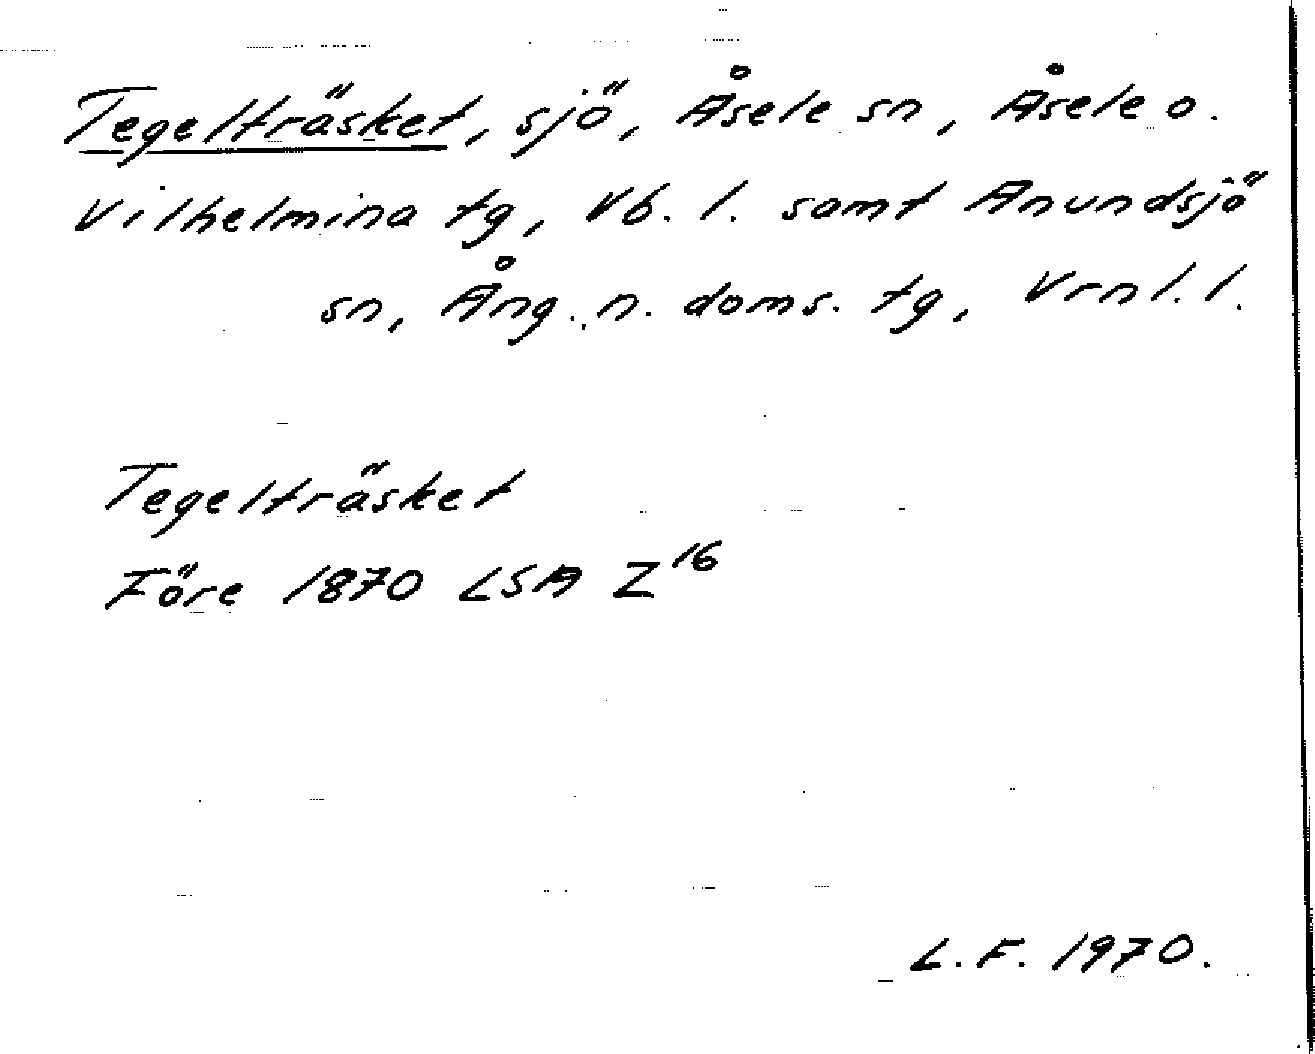 Tegelträsket, sjö, Åsele sn, Åsele o.
Vilhelmina tg, Vb. l. samt Anundsjö
sn, Ång. n. doms. tg, Vrnl. l.
Tegelträsket
Före 1870 LSA Z¹⁶
L.F. 1970.